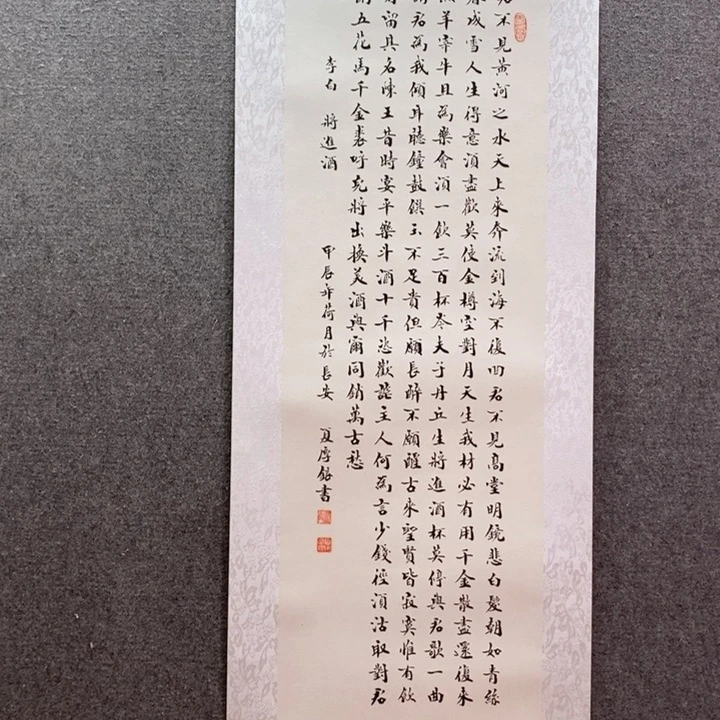 君不見黃河之水天上來奔流到海不復回君不見高堂明鏡悲白髮朝如青絲
暮成雪人生得意須盡歡莫使金樽空對月天生我材必有用千金散盡還復來
烹羊宰牛且為樂會須一飲三百杯岑夫子丹丘生將進酒杯莫停與君歌一曲
請君為我傾耳聽鐘鼓饌玉不足貴但願長醉不願醒古來聖賢皆寂寞惟有飲
者留其名陳王昔時宴平樂斗酒十千恣歡謔主人何為言少錢徑須沽取對君
酌五花馬千金裘呼兒將出換美酒與爾同銷萬古愁
李白 將進酒 甲辰年荷月於長安 夏厚銀書